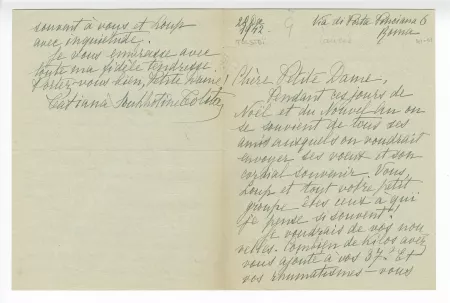 Via di Porta Pinciana 6
Roma
Chère Petite Dame,
Pendant ces jours de
Noël et du Nouvel An on
se souvient de tous ses
amis auxquels on voudrait
envoyer ses voeux et son
cordial souvenir. Vous,
Loup et tout votre petit
groupe êtes ceux à qui
je pense si souvent!
Je voudrais de vos nou
velles. Combien de kilos avez
vous ajouté à vos 37? Et
vos rhumatismes – vous
souvent à vous et Loup
avec inquiétude.
Je vous embrasse avec
toute ma fidèle tendresse.
Portez-vous bien, Petite
Tatiana Soukhotine Tolstoï